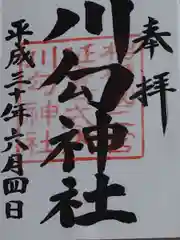 奉拝
川勾神社
平成三十年六月四日